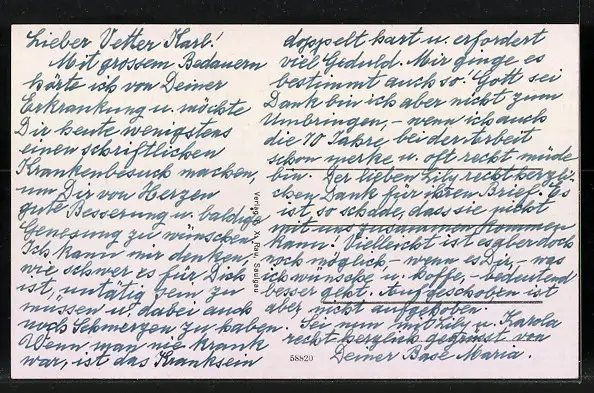 Lieber Vetter Karl!
Mit grossem Bedauern
hörte ich von Deiner
Erkrankung u. möchte
Dir heute wenigstens
einen schriftlichen
Krankenbesuch machen,
um Dir von Herzen
gute Besserung u. baldige
Genesung zu wünschen.
Ich kann mir denken,
wie schwer es für Dich
ist, untätig sein zu
müssen u. dabei auch
noch Schmerzen zu haben.
Wenn man nie krank
war, ist das Kranksein
doppelt hart u. erfordert
viel Geduld. Mir ginge es
bestimmt auch so. Gott sei
Dank bin ich aber nicht zum
Umbringen, - wenn ich auch
die 70 Jahre, bei der Arbeit
schon merke u. oft recht müde
bin. Der lieben Lily recht herzli-
chen Dank für ihren Brief. Es
ist, so schade, dass sie nicht
mit uns zusammen kommen
kann! Vielleicht ist es aber doch
noch möglich, - wenn es Dir, - was
ich wünsche u. hoffe, - bedeutend
besser geht. Aufgeschoben ist
aber nicht aufgehoben.
Sei nun mit Lily u. Karola
recht herzlich gegrüsst von
Deiner Base Maria.
Verlag X. Rau, Saulgau
58820